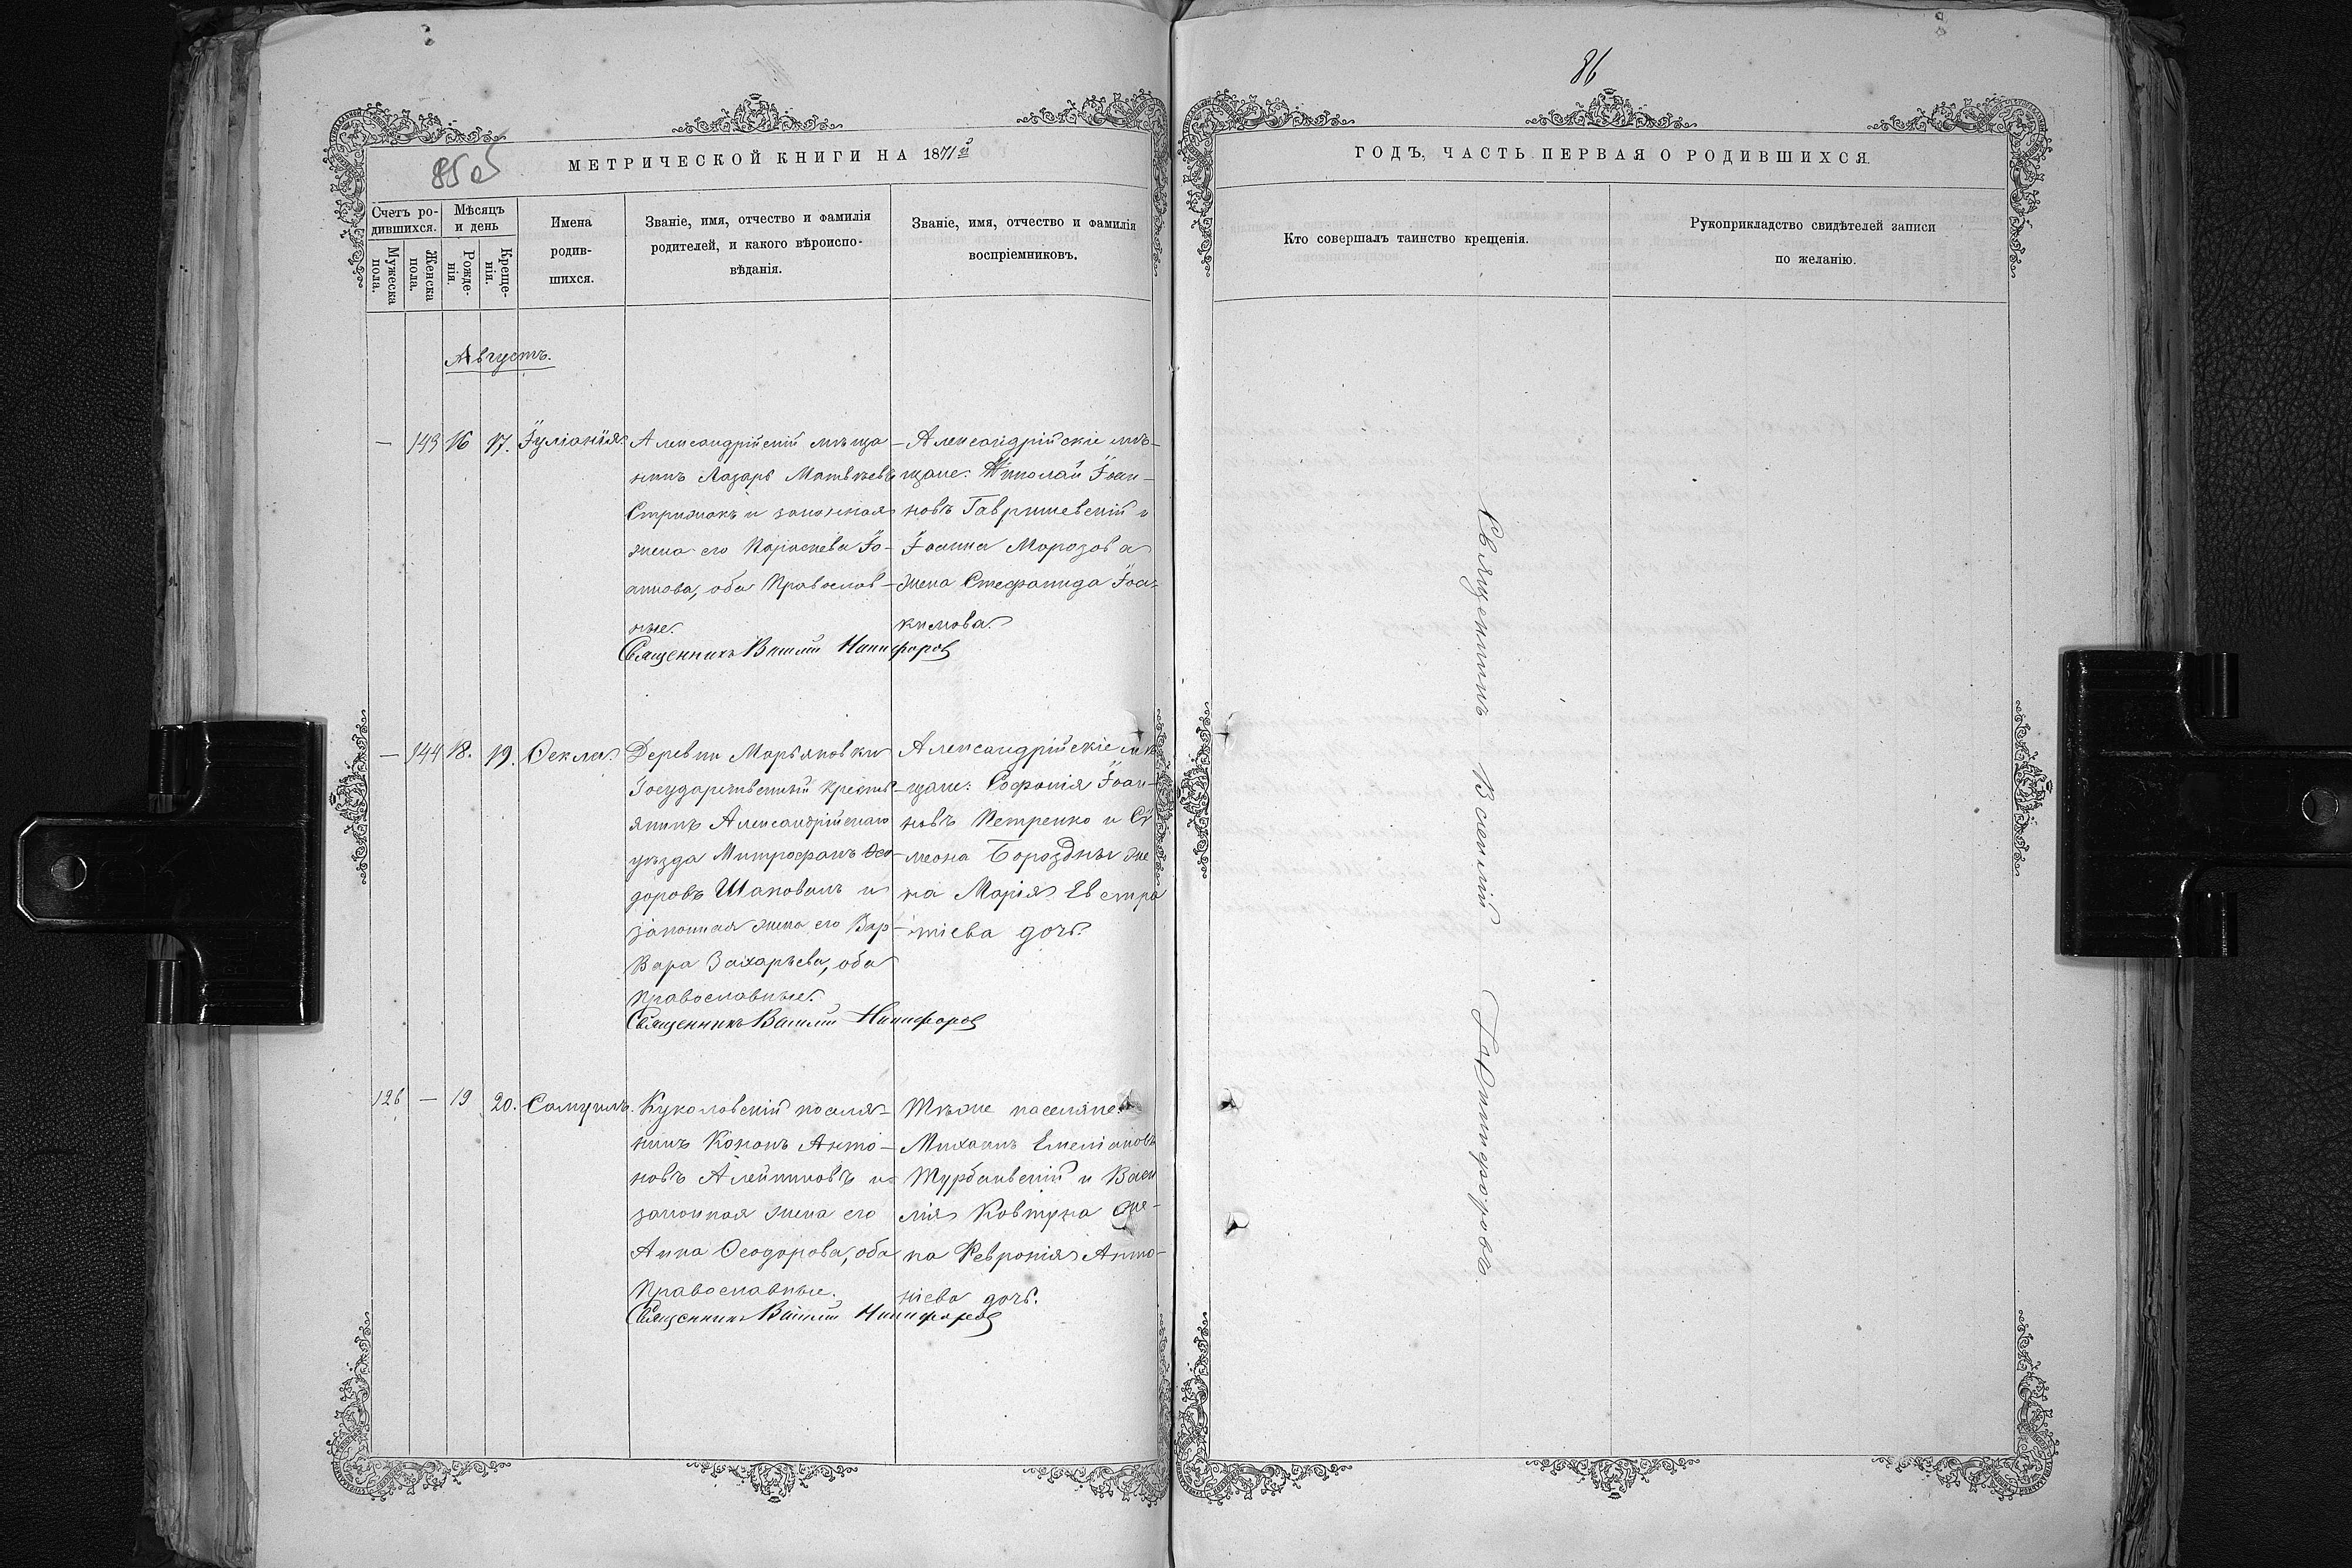 86
85 об
МЕТРИЧЕСКОЙ КНИГИ НА 1871й
ГОДЪ, ЧАСТЬ ПЕРВАЯ О РОДИВШИХСЯ.
Счетъ ро-
дившихся.
Мужеска
пола.
Женска
пола.
Мѣсяцъ
и день
Рожде-
нія.
Креще-
нія.
Имена
родив-
шихся.
Званіе, имя, отчество и фамилія
родителей, и какого вѣроиспо-
вѣданія.
Званіе, имя, отчество и фамилія
воспріемниковъ.
Кто совершалъ таинство крещенія.
Рукоприкладство свидѣтелей записи
по желанію.
Августъ.
— 143 16 17. Іуліанія.
Александрійскій мѣща-
нинъ Лазарь Матвѣевъ
Стрижакъ и законная
жена его Параскева Іо-
аннова, оба Православ-
ные.
Александрійскіе мѣ-
щане: Николай Іоан-
новъ Гавришевскій и
Іоанна Морозова
жена Стефанида Іоа-
кимова.
Священникъ Василій Никифоров
— 144 18. 19. Ѳекла.
Деревни Марьяновки
Государственный кресть-
янинъ Александрійскаго
уѣзда Митрофанъ Ѳео-
доровъ Шаповалъ и
законная жена его Вар-
вара Захарьева, оба
православные.
Александрійскіе мѣ
щане: Софонія Іоан-
новъ Петренко и Си
меона Бороздны же
на Марія Евстра
тіева дочь.
Священникъ Василій Никифоров
126 — 19 20. Самуилъ.
Куколовскій поселя-
нинъ Кононъ Анто-
новъ Алейниковъ и
законная жена его
Анна Ѳеодорова, оба
Православные.
Тѣже поселяне:
Михаилъ Емеліановъ
Турбаевскій и Васи
лія Ковтуна же-
на Февронія Анто-
ніева дочь.
Священникъ Василій Никифоров
Священникъ Василій Никифоровъ